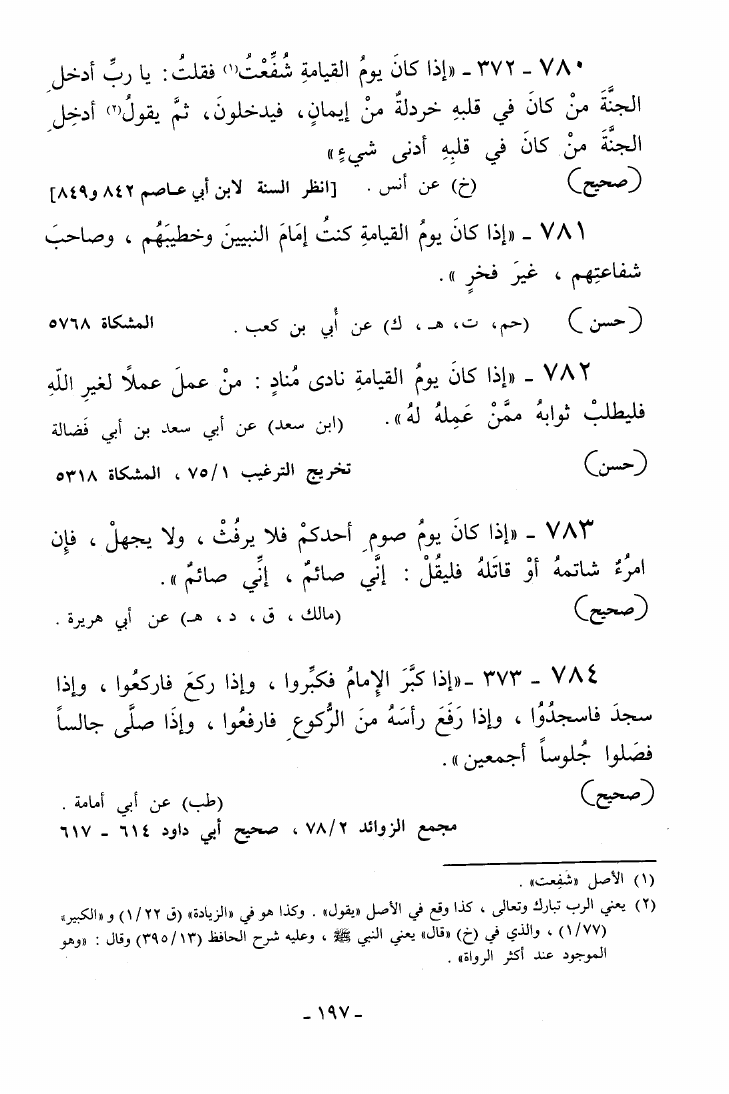 ٧٨٠ - ٣٧٢ - «إذا كانَ يومُ القيامةِ شُفِّعْتُ(١) فقلتُ : يا ربِّ أدخلِ
الجنَّةَ منْ كانَ في قلبهِ خردلةٌ منْ إيمانٍ، فيدخلونَ، ثمَّ يقولُ(٢) أدخِلِ
الجنَّةَ منْ كانَ في قلبِهِ أدنى شيءٍ»
(صحيح) (خ) عن أنس . [انظر السنة لابن أبي عاصم ٨٤٢ و٨٤٩]
٧٨١ - «إذا كانَ يومُ القيامةِ كنتُ إمَامَ النبيينَ وخطيبَهُم ، وصاحبَ
شفاعتِهم ، غيرَ فخرٍ ».
(حسن) (حم، ت، هـ ، ك) عن أُبي بن كعب . المشكاة ٥٧٦٨
٧٨٢ - «إذا كانَ يومُ القيامةِ نادى مُنادٍ : منْ عملَ عملاً لغيرِ اللّهِ
فليطلبْ ثوابهُ ممَّنْ عَمِلهُ لهُ». (ابن سعد) عن أبي سعد بن أبي فَضالة
(حسن) تخريج الترغيب ٧٥/١ ، المشكاة ٥٣١٨
٧٨٣ - «إذا كانَ يومُ صومِ أحدكمْ فلا يرفُثْ ، ولا يجهلْ ، فإن
امرُءٌ شاتمهُ أوْ قاتَلهُ فليقُلْ : إنَّي صائمٌ ، إنِّي صائمٌ ».
(صحيح) (مالك ، ق ، د ، هـ) عن أبي هريرة .
٧٨٤ - ٣٧٣ - «إذا كبَّرَ الإمامُ فكبِّروا ، وإذا ركعَ فاركعُوا ، وإذا
سجدَ فاسجدُوُا ، وإذا رَفَعَ رأسَهُ منَ الرُّكوعِ فارفعُوا ، وإذَا صلَّى جالساً
فصَلوا جُلوساً أجمعين ».
(صحيح) (طب) عن أبي أمامة .
مجمع الزوائد ٧٨/٢ ، صحيح أبي داود ٦١٤ - ٦١٧
(١) الأصل «شَفِعت» .
(٢) يعني الرب تبارك وتعالى ، كذا وقع في الأصل «يقول» . وكذا هو في «الزيادة» (ق ١/٢٢) و «الكبير»
(١/٧٧) ، والذي في (خ) «قال» يعني النبي ﷺ ، وعليه شرح الحافظ (٣٩٥/١٣) وقال : «وهو
الموجود عند أكثر الرواة» .
- ١٩٧ -